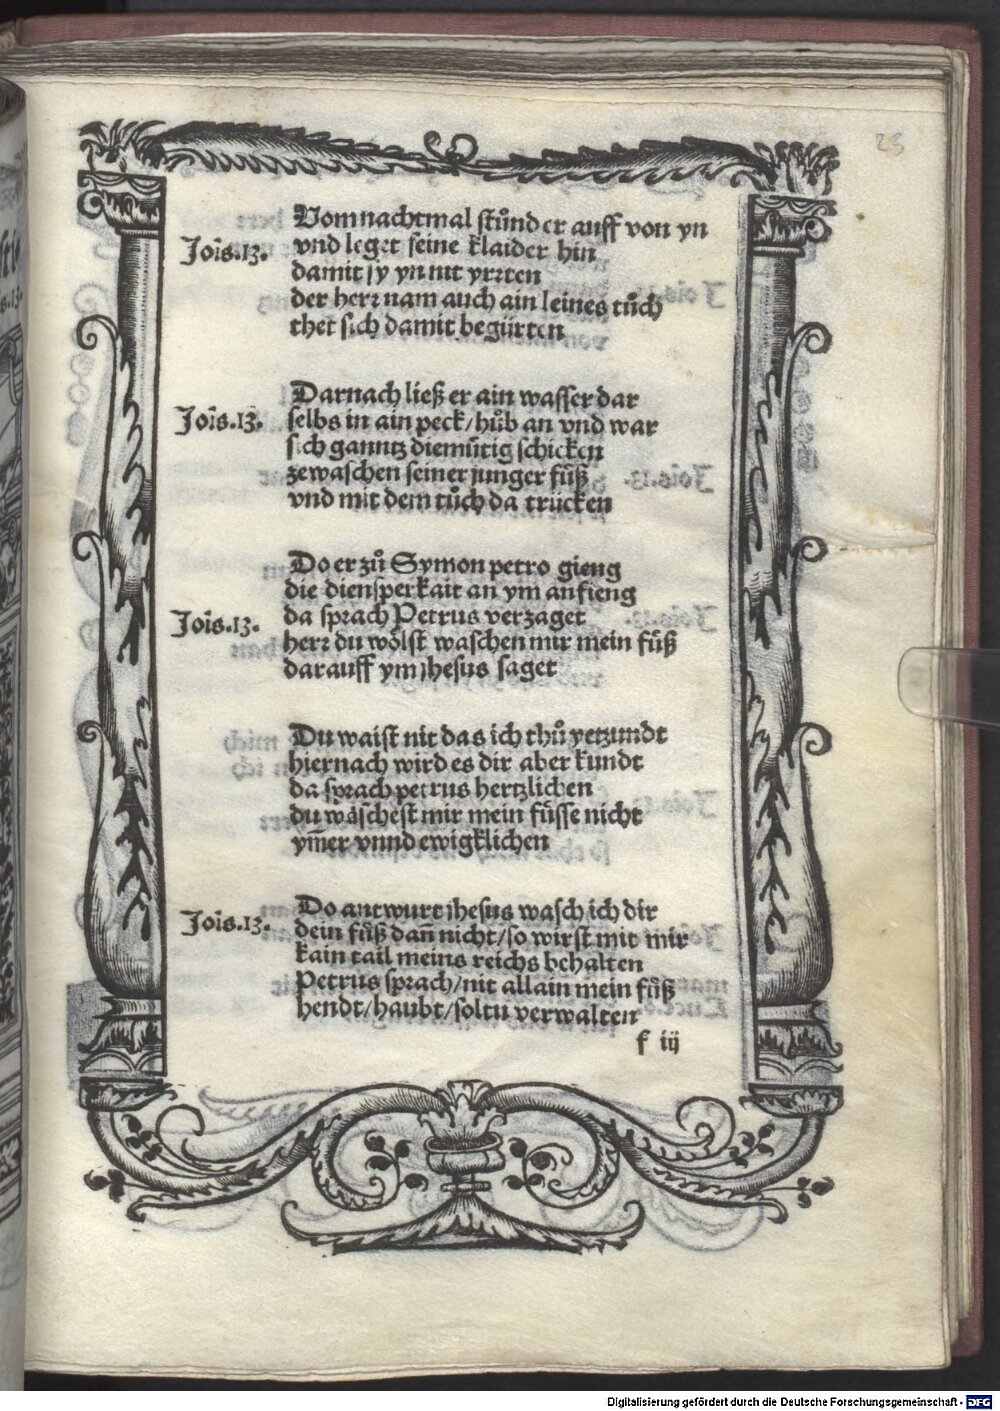 23
Vom nachtmal stůnd er auff von yn
Jois.13. vnd leget seine klaider hin
damit sy yn nit yrrten
der herr nam auch ain leines tůch
thet sich damit begürten
Darnach ließ er ain wasser dar
Jois.13. selbs in ain peck/hůb an vnd war
sich ganntz diemůtig schicken
zewaschen seiner junger fůß
vnd mit dem tůch da trücken
Do er zů Symon petro gieng
die diensperkait an ym anfieng
Jois.13. da sprach Petrus verzaget
herr du wölst waschen mir mein fůß
darauff ym jhesus saget
Du waist nit das ich thů yetzundt
hiernach wird es dir aber kundt
da sprach petrus hertzlichen
du wäschest mir mein fůsse nicht
ym̃er vnnd ewigklichen
Do antwurt jhesus wasch ich dir
Jois.13. dein fůß dañ nicht/so wirst mit mir
kain tail meins reichs behalten
Petrus sprach/nit allain mein fůß
hendt/haubt/soltu verwalten
f iij
Digitalisierung gefördert durch die Deutsche Forschungsgemeinschaft - DFG